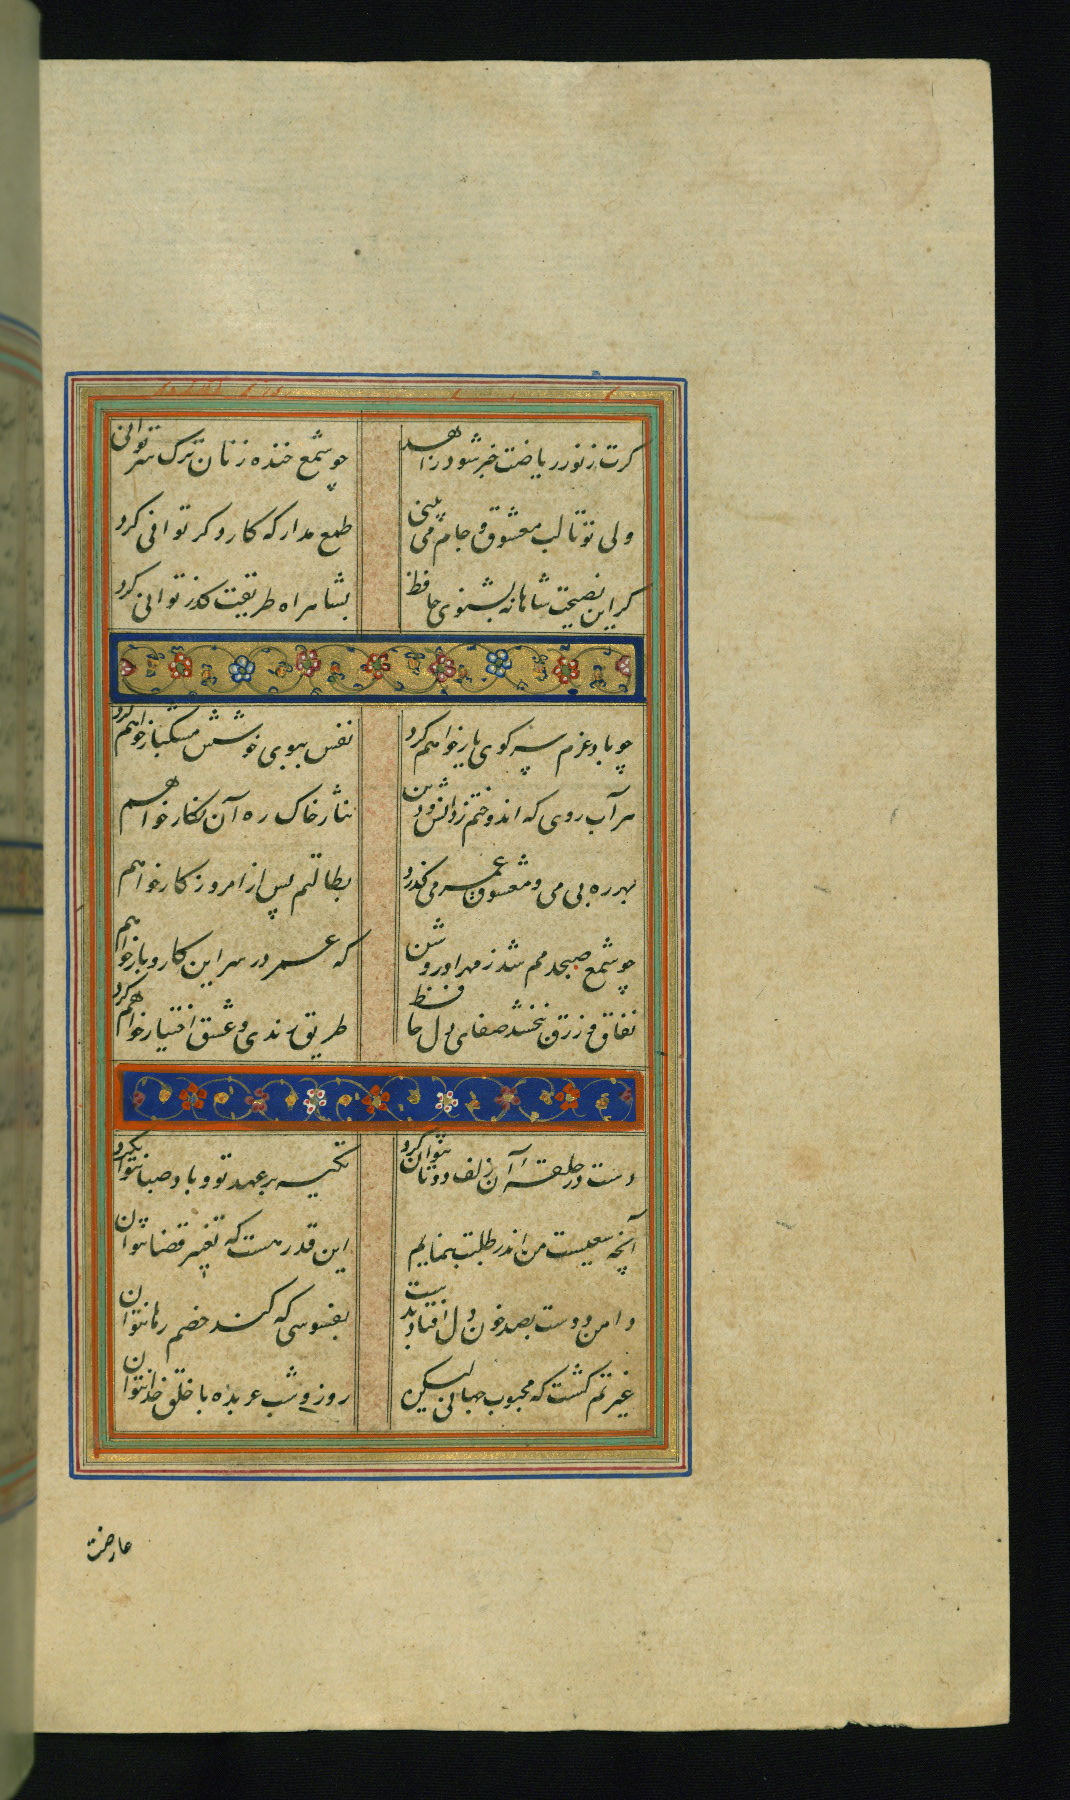 کرت ز نور ریاضت خبر شود زاهد
چو شمع خنده زنان ترک سر توانی
ولی تو تا لب معشوق و جام می بینی
طمع مدار که کار دکر توانی کرد
کر این نصیحت شاهانه بشنوی حافظ
بشاهراه طریقت کذر توانی کرد
چو باد عزم سر کوی یار خواهم کرد
نفس ببوی خوشش مشکبار خواهم کرد
هر آب روی که اندوختم ز دانش و دین
نثار خاک ره آن نکار خواهم
بهرزه بی می و معشوق عمر می کذرد
بطالتم بس از امروز کار خواهم
چو شمع صبحدمم شد ز مهر او روشن
که عمر در سر این کار و بار خواهم
نفاق و زرق نبخشد صفای دل حافظ
طریق رندی و عشق اختیار خواهم کرد
دست در حلقه آن زلف دوتا نتوان کرد
تکیه بر عهد تو و باد صبا نتوان کرد
آنچه سعیست من اندر طلبت بنمایم
این قدر هست که تغییر قضا نتوان
دامن دوست بصد خون دل افتاد بدست
بفسوسی که کند خصم رها نتوان
غیرتم کشت که محبوب جهانی لیکن
روز و شب عربده با خلق خدا نتوان
عارضت